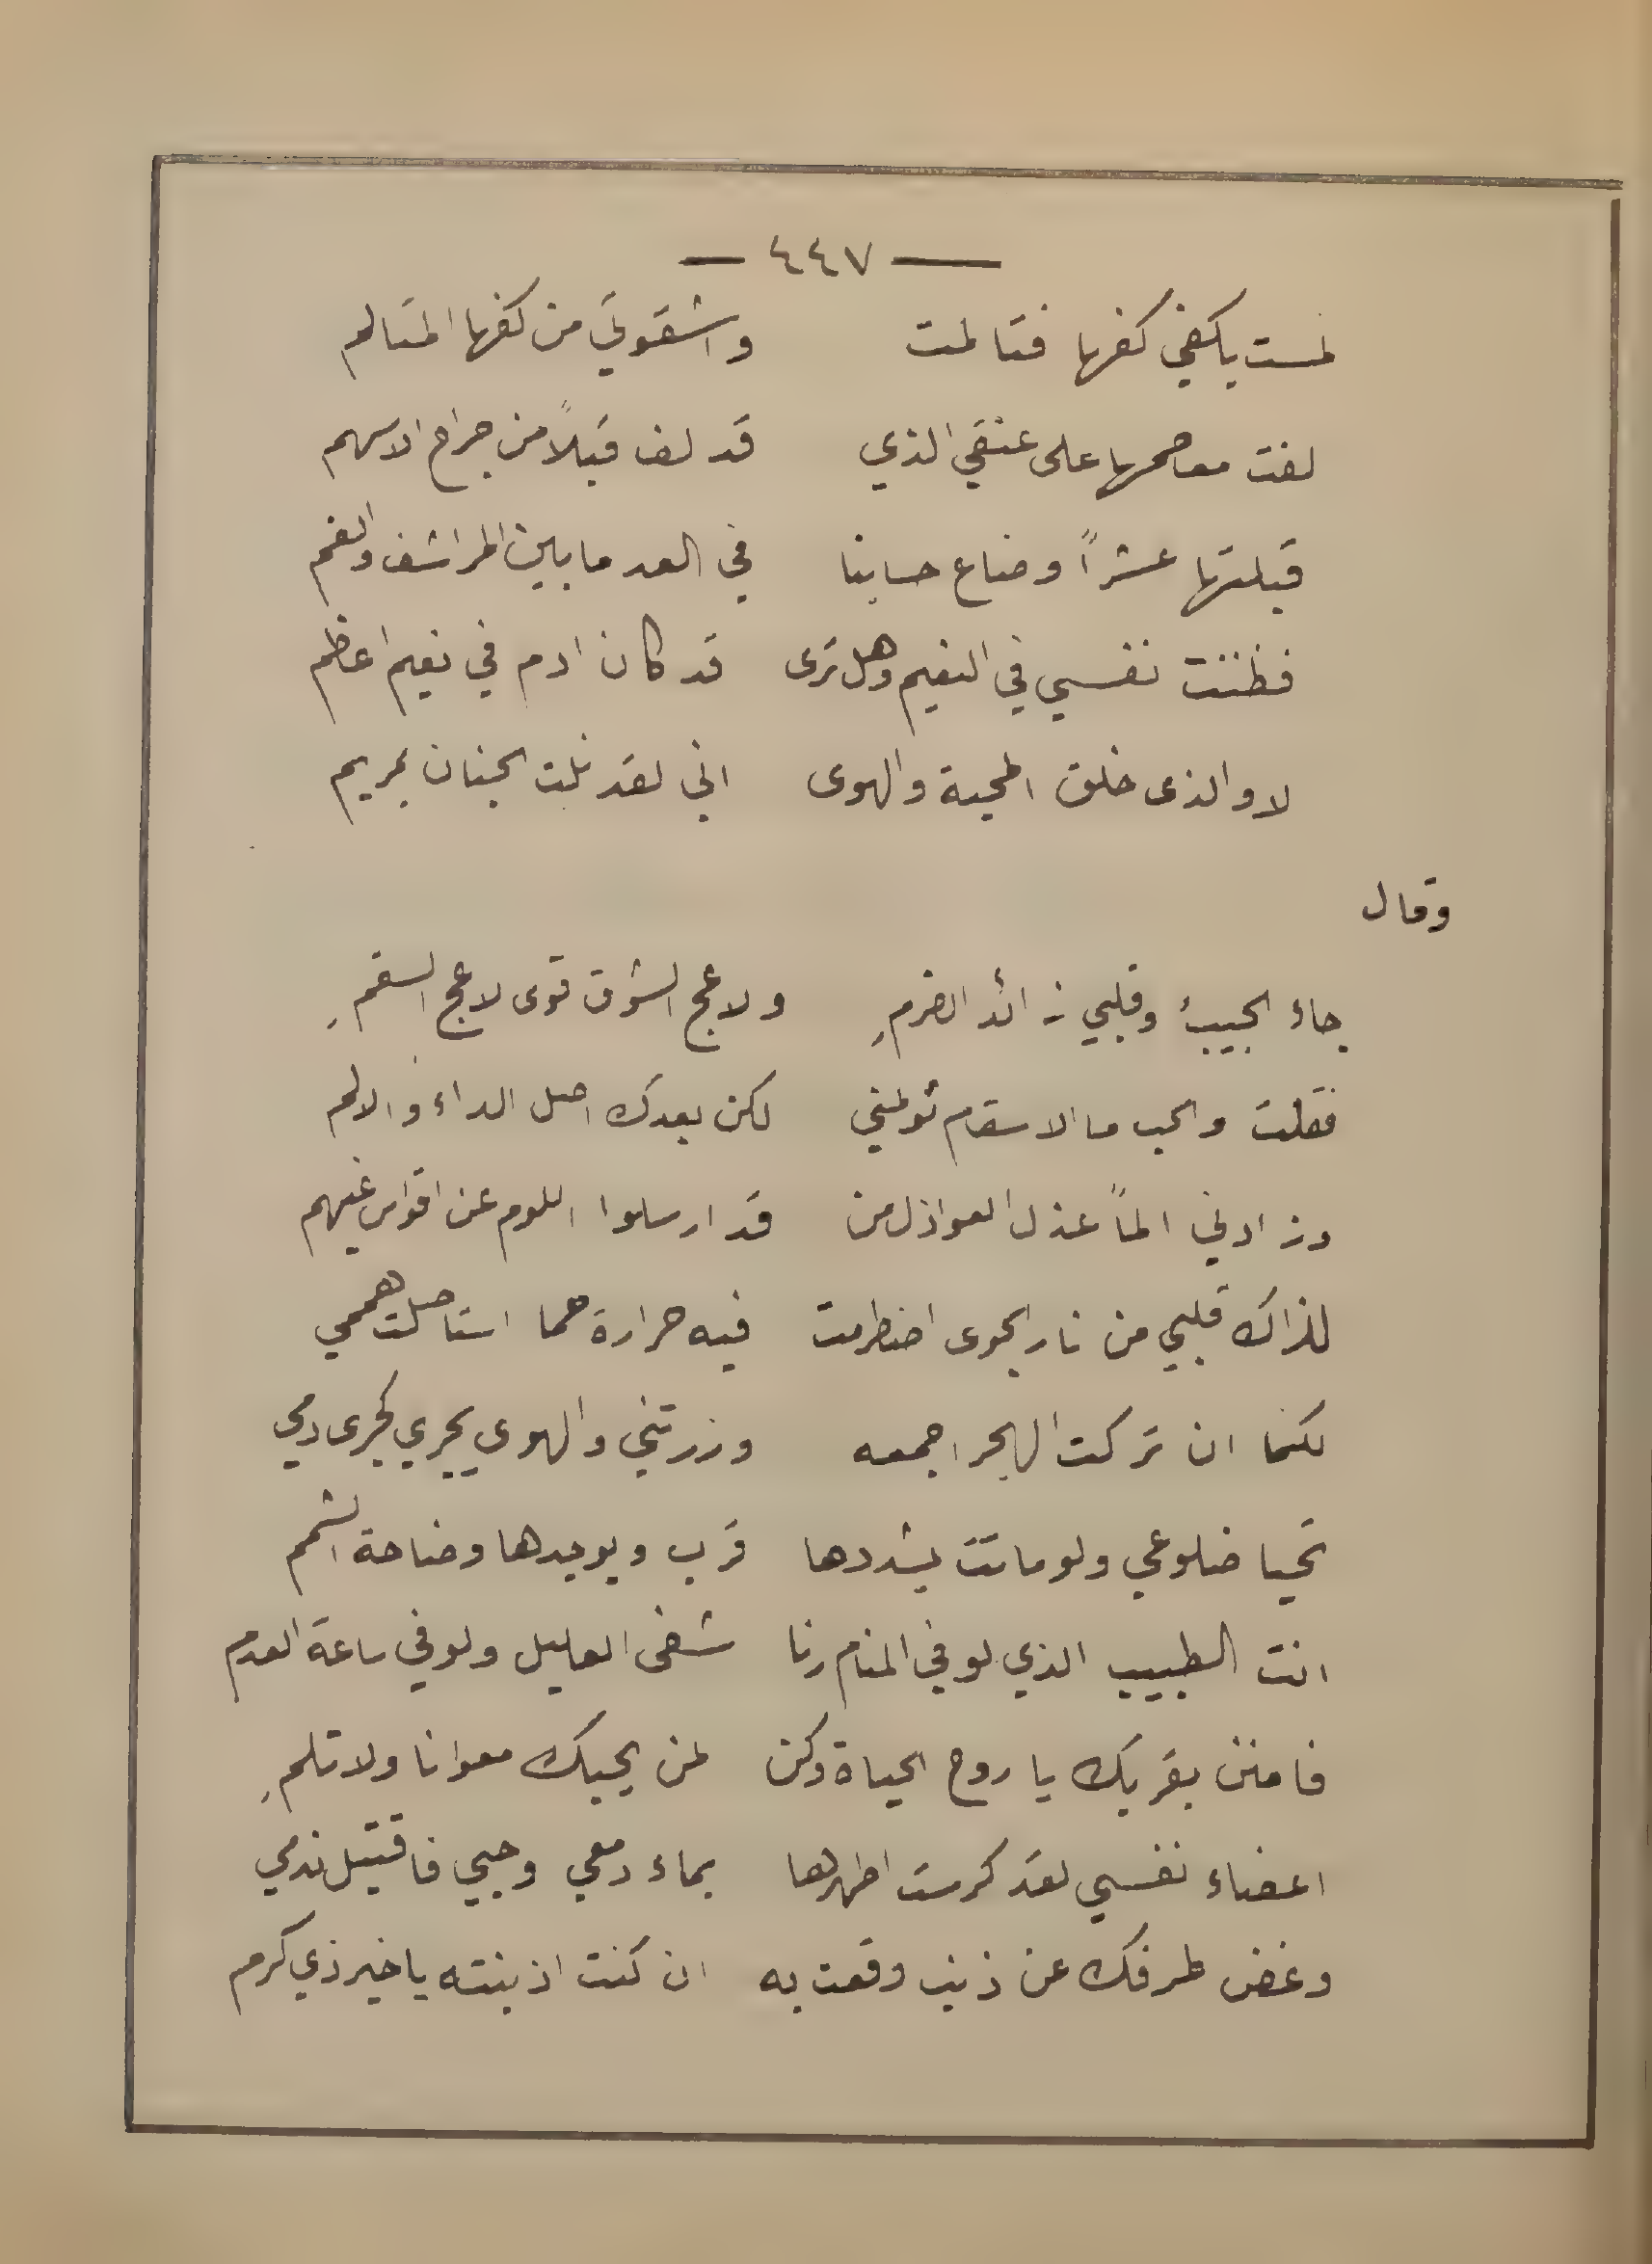 — ٤٤٧ —
لمست بكفي كفها فتالمت واشقوتي من كفها المتالم
لفت معاصمها على عنقي الذي قد لف قبلاً من جراح الاسهم
قبلتها عشراً وضاع حسابنا في العد ما بين المراشف والفم
فظننت نفسي في النعيم وهل ترى قد كان ادم في نعيم اعظم
لا والذى خلق المحبة والهوى اني لقد نلت الجنان بمريم
وقال
جاء الحبيبُ وقلبي زائد الضرمِ ولاعج الشوق قوى لاعج السقمِ
فقلت والحب ما الاسقام تولمني لكن بعدك اصل الداء والالم
وزادني الماً عذل العواذل من قد ارسلوا اللوم عن اقواس غيهم
لذاك قلبي من نار الجوى اضطرمت فيه حرارة حما استاصلت هممي
لكنما ان تركت الهجر اجمعه وزرتني والهوى يجري كجرى دمي
تحيا ضلوعي ولو ماتت يشددها قرب ويوجدها وضاحة الشمم
انت الطبيب الذي لو في المنام رنا شفى العليل ولو في ساعة العدم
فامنن بقربك يا روح الحياة وكن لمن يحبك معوانا ولا تلمِ
اعضاء نفسي لقد كرست اطهرها بماء دمعي وحبي فاقتبل ندمي
وغض طرفك عن ذنب وقعت به ان كنت اذنبته يا خير ذي كرم